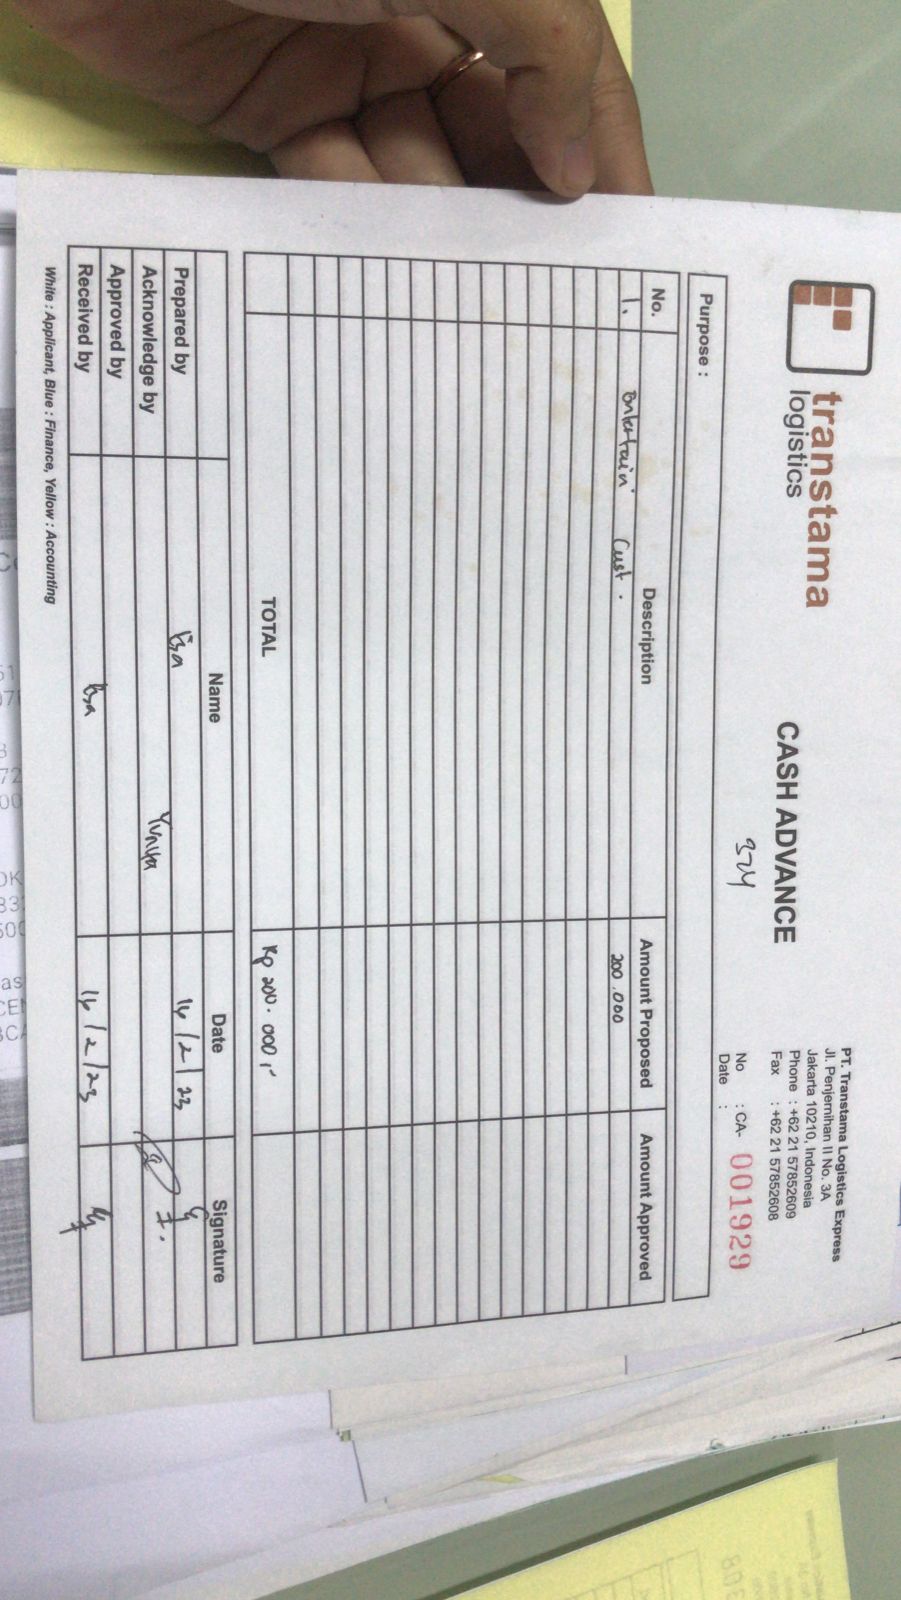 transtama
logistics
CASH ADVANCE
374
PT. Transtama Logistics Express
Jl. Penjernihan II No. 3A
Jakarta 10210, Indonesia
Phone : +62 21 57852609
Fax : +62 21 57852608
No : CA- 001929
Date :
Purpose :
No. Description Amount Proposed Amount Approved
1. Entertain Cust. 200.000
TOTAL Rp 200.000,-
Name Date Signature
Prepared by 14/2/23
Acknowledge by Yunita
Approved by
Received by 14/2/23
White : Applicant, Blue : Finance, Yellow : Accounting